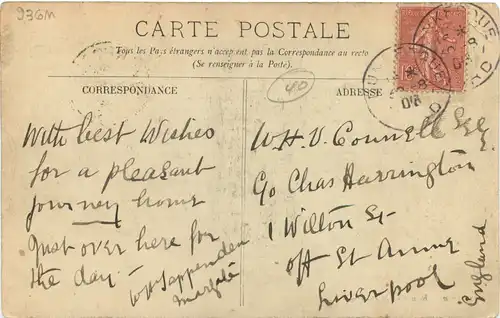 936M
CARTE POSTALE
Tous les Pays étrangers n'acceptent pas la Correspondance au recto
(Se renseigner à la Poste).
40
CORRESPONDANCE
With best Wishes
for a pleasant
journey home
Just over here for
the day -
W H Tappenden
Margate
ADRESSE
W. H. V. Connell Esq
C/o Chas Harrington
1 Wilton St
off St Anne
Liverpool
England